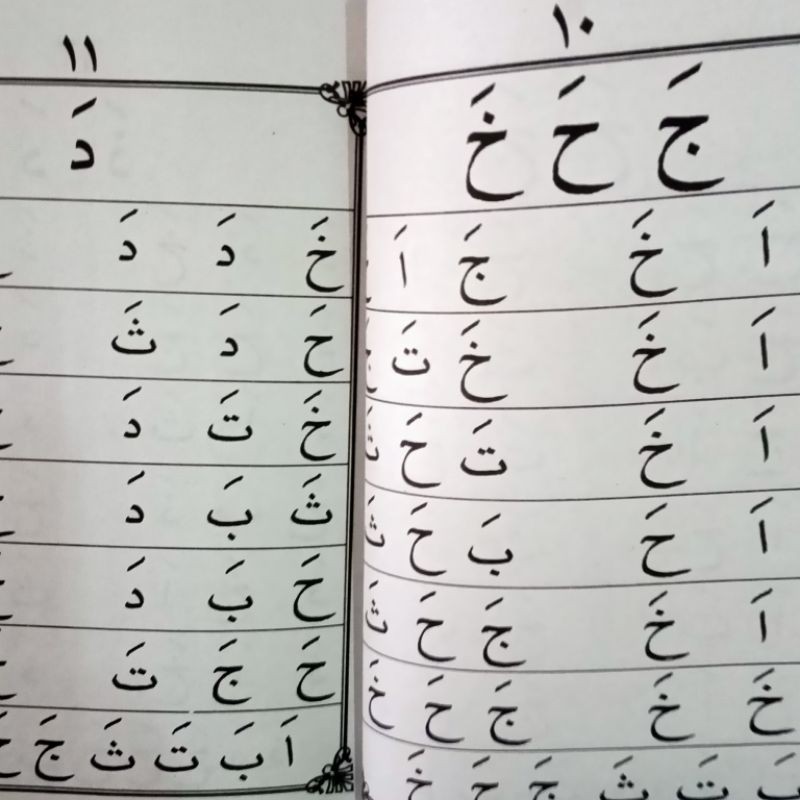 ١٠
جَ حَ خَ
اَ خَ جَ اَ
اَ خَ خَ تَ
اَ خَ تَ حَ ثَ
اَ حَ بَ حَ ثَ
اَ خَ جَ حَ ثَ
خَ خَ جَ حَ خَ
بَ تَ ثَ جَ حَ خَ
١١
دَ
خَ دَ دَ
حَ دَ ثَ
خَ تَ دَ
ثَ بَ دَ
حَ بَ دَ
حَ جَ تَ
اَ بَ تَ ثَ جَ